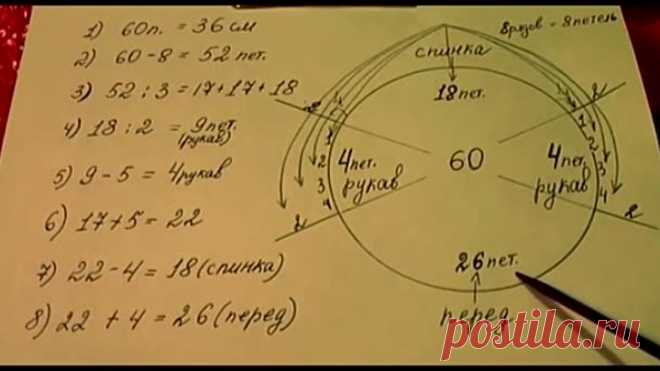 1) 60п. = 36 см
2) 60 - 8 = 52 пет.
3) 52 : 3 = 17 + 17 + 18
4) 18 : 2 = 9 пет.
(рукав)
5) 9 - 5 = 4 рукав
6) 17 + 5 = 22
7) 22 - 4 = 18 (спинка)
8) 22 + 4 = 26 (перед)
8 = 8 петель
спинка
18 пет.
2
2
1
1
2
2
3
3
4
4
4 пет.
рукав
60
4 пет.
рукав
2
2
26 пет.
перед
postila.ru